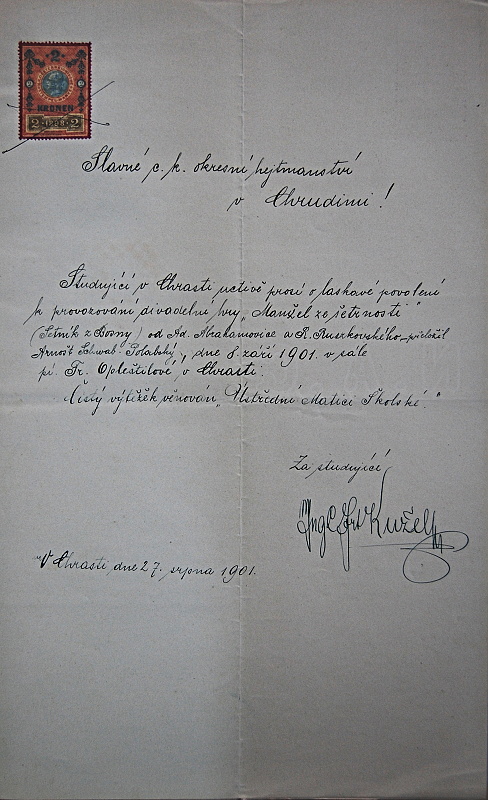 2
KRONEN
2 2
Slavné c. k. okresní hejtmanství
v Chrudimi!
Studující v Chrasti uctivě prosí o laskavé povolení
k provozování divadelní hry „Manžel ze šetrnosti"
(Setník z Bosny) od Ad. Abrahamovice a R. Ruszkovského, přeložil
Arnošt Schwab-Polabský, dne 8. září 1901. v sále
pí. Fr. Opleštilové v Chrasti.
Čistý výtěžek věnován „Ústřední Matici Školské."
Za studující
Kužel
V Chrasti, dne 27. srpna 1901.